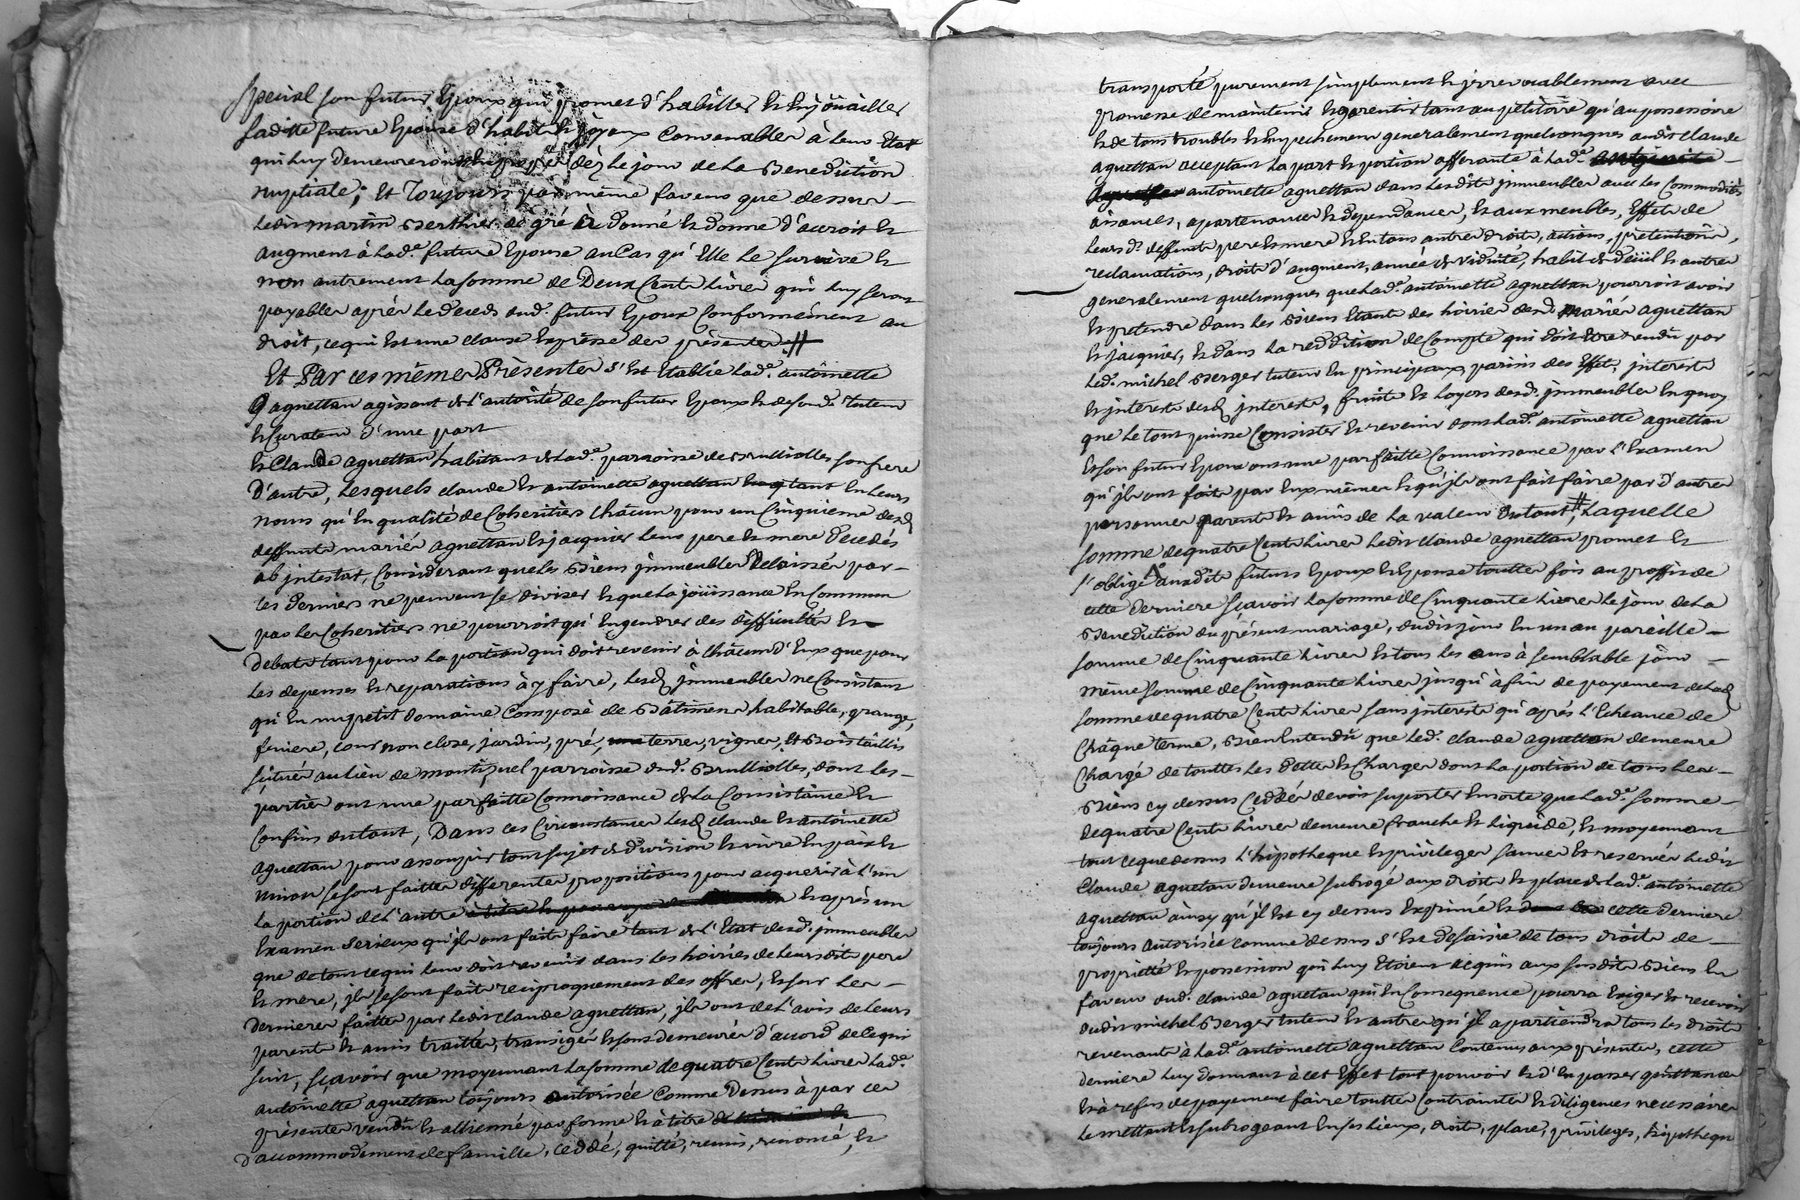 special son futur Epoux qui promet d'habiller et Enjoüailler
saditte future Epouse d'habits et joyaux Convenables à leur Etat
qui luy demeureront En propre dez le jour de la Benediction
nuptiale; Et Toujours par même faveur que dessus
Ledit martin Berthier de gré a donné et donne d'accroit et
augment à lad.e future Epouse au Cas qu'Elle le survive et
non autrement la somme de Deux Cents livres qui luy seront
payables après le deceds dud. futur Epoux Conformément au
droit, ce qui Est une clause Expresse des présentes #
Et Par ces mêmes Présentes s'Est Etablie lad.e antoinette
aguettan agissant de l'autorité de son futur Epoux et de sond. tuteur
et Curateur d'une part
Et Claude aguettan habitant de lad.e parroisse de Brulliolles son frere
D'autre, Lesquels claude et antoinette aguettan tant En leurs
noms qu'En qualité de Coheritiers Chacun pour un Cinquieme desd.
deffunts mariés aguettan et jacquier leurs pere et mere decedés
ab intestat, Considerant que les Biens jmmeubles Delaissés par
ces derniers ne peuvent se diviser et que la joüissance En Commun
par les Coheritiers ne pourroit qu'Engendrer des difficultés et
Debats tant pour la portion qui doit revenir à Chacun d'Eux que pour
Les depenses et reparations à y faire, lesd. jmmeubles ne Consistant
qu'En un petit domaine Composé de Batiments habitable, grange,
feniere, cour non close, jardin, pré, terres, vignes, Et Bois taillis
situés au lieu de montiquel parroisse dud. Brulliolles, dont les
parties ont une parfaitte Connoissance de la Consistance et
Confins du tout, Dans ces Circonstances lesd. claude et antoinette
aguettan pour assoupir tout sujet de division et vivre En paix et
union se sont faittes differentes propositions pour acquerir à l'un
la portion de l'autre et après un
Examen serieux qu'jls ont fait faire tant de l'Etat desd. jmmeubles
que de tout ce qui leur doit revenir dans les hoiries de leursdits pere
Et mere, jls se sont faits reciproquement des offres, Et sur les
dernieres faittes par ledit claude aguettan, jls ont de l'avis de leurs
parents et amis traittés, transigés et sont demeurés d'accord de ce qui
suit, sçavoir que moyennant la somme de quatre Cents livres lad.e
antoinette aguettan toûjours autorisée Comme Dessus à par ces
présentes vendu et allienné par forme et à titre
D'accommodement de famille, Ceddé, quitté, remis, renoncé, et
transporté purement simplement et jrrevocablement avec
promesse de maintenir et garentir tant au petitoire qu'au possessoire
et de tous troubles et Empechements generalement quelconques audit Claude
aguettan acceptant la part et portion afferante à lad.e
antoinette aguettan dans lesdits jmmeubles avec les Commodités
aisances, apartenances et dependances, et aux meubles, Effets de
leursd. deffunts pere et mere et En tous autres droits, actions, prétentions,
reclamations, droits d'augment, année de viduité, habit de deüil et autres
generalement quelconques que lad.e antoinette aguettan pourroit avoir
et pretendre dans les Biens Etants des hoiries desd. mariés aguettan
et jacquier, et dans la reddition de Compte qui doit Etre rendû par
led. michel Berger tuteur En principaux parins des Effets, jnterets
et jnterets desd. jnterets, fruits et loyers desd. jmmeubles En quoy
que le tout puisse Consister et revenir dont lad.e antoinette aguettan
Et son futur Epoux ont une parfaitte Connoissance par l'Examen
qu'jls ont fait par Eux mêmes et qu'jls ont fait faire par d'autres
personnes parents et amis de la valeur du tout, # Laquelle
somme de quatre Cents livres Ledit claude aguettan promet et
s'oblige auxdits futurs Epoux et Epouse touttes fois au proffit de
cette derniere sçavoir la somme de Cinquante livres le jour de la
Benediction du présent mariage, dudit jour En un an pareille
somme de Cinquante livres et tous les ans à semblable jour
même somme de Cinquante livres jusqu'à fin de payement de lad.
somme de quatre Cents livres sans jnterets qu'après l'Echeance de
Chaque terme, Bien Entendû que led. claude aguettan demeure
Chargé de touttes les dettes et Charges dont la portion de tous les
Biens cy dessus Ceddés devoit suporter Ensorte que lad.e somme
de quatre Cents livres demeure franche et liquide, et moyennant
tout ce que dessus l'hipotheque et privileges sauves et reservés Ledit
Claude aguetan demeure subrogé aux droits et place de lad.e antoinette
aguettan ainsy qu'jl Est cy dessus Exprimé et cette derniere
toûjours autorisée comme dessus s'Est desaisie de tous droits de
proprietté et possession qui luy Etoient acquis aux susdits Biens En
faveur dud. claude aguetan qui En Consequence pourra Exiger et recevoir
dudit michel Berger tuteur et autres qu'jl apartiendra tous les droits
revenants à lad.e antoinette aguettan Contenus aux présentes, cette
derniere luy donnant à cet Effet tout pouvoir et d'En passer quittances
et à refus de payement faire touttes Contraintes et diligences necessaires
Le mettant et subrogeant En ses lieux, droits, place, privileges, hipotheques